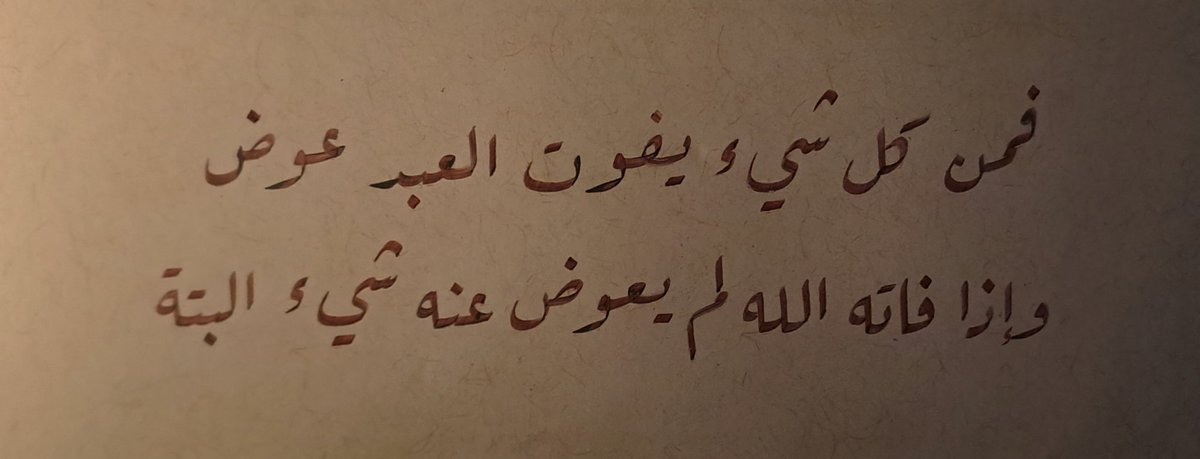 فمن كل شيء يفوت العبد عوض
وإذا فاته الله لم يعوض عنه شيء البتة